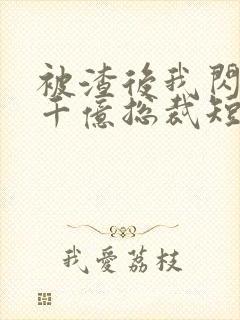 被渣後我閃
千億總裁短
我愛荔枝